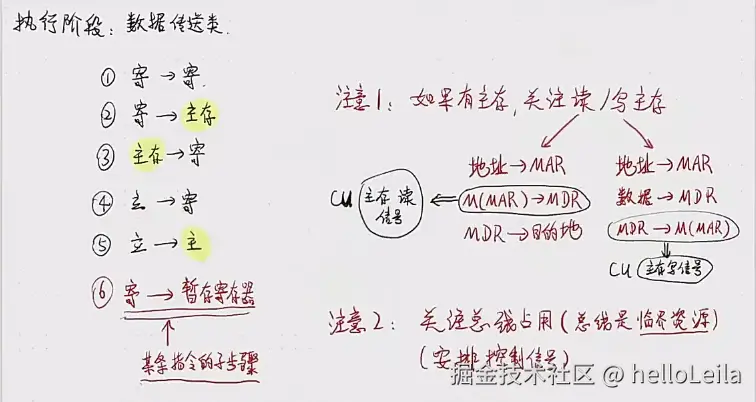 执行阶段：数据传送类.
① 寄→寄.
② 寄→主存
③ 主存→寄
④ 立→寄
⑤ 立→主
⑥ 寄→暂存寄存器
某条指令的子步骤
注意1：如果有主存，关注读/写主存
地址→MAR
M(MAR)→MDR
MDR→目的地
CU 主存读信号
地址→MAR
数据→MDR
MDR→M(MAR)
CU 主存写信号
注意2：关注总线占用(总线是临界资源)
(安排控制信号)
掘金技术社区 @ helloLeila